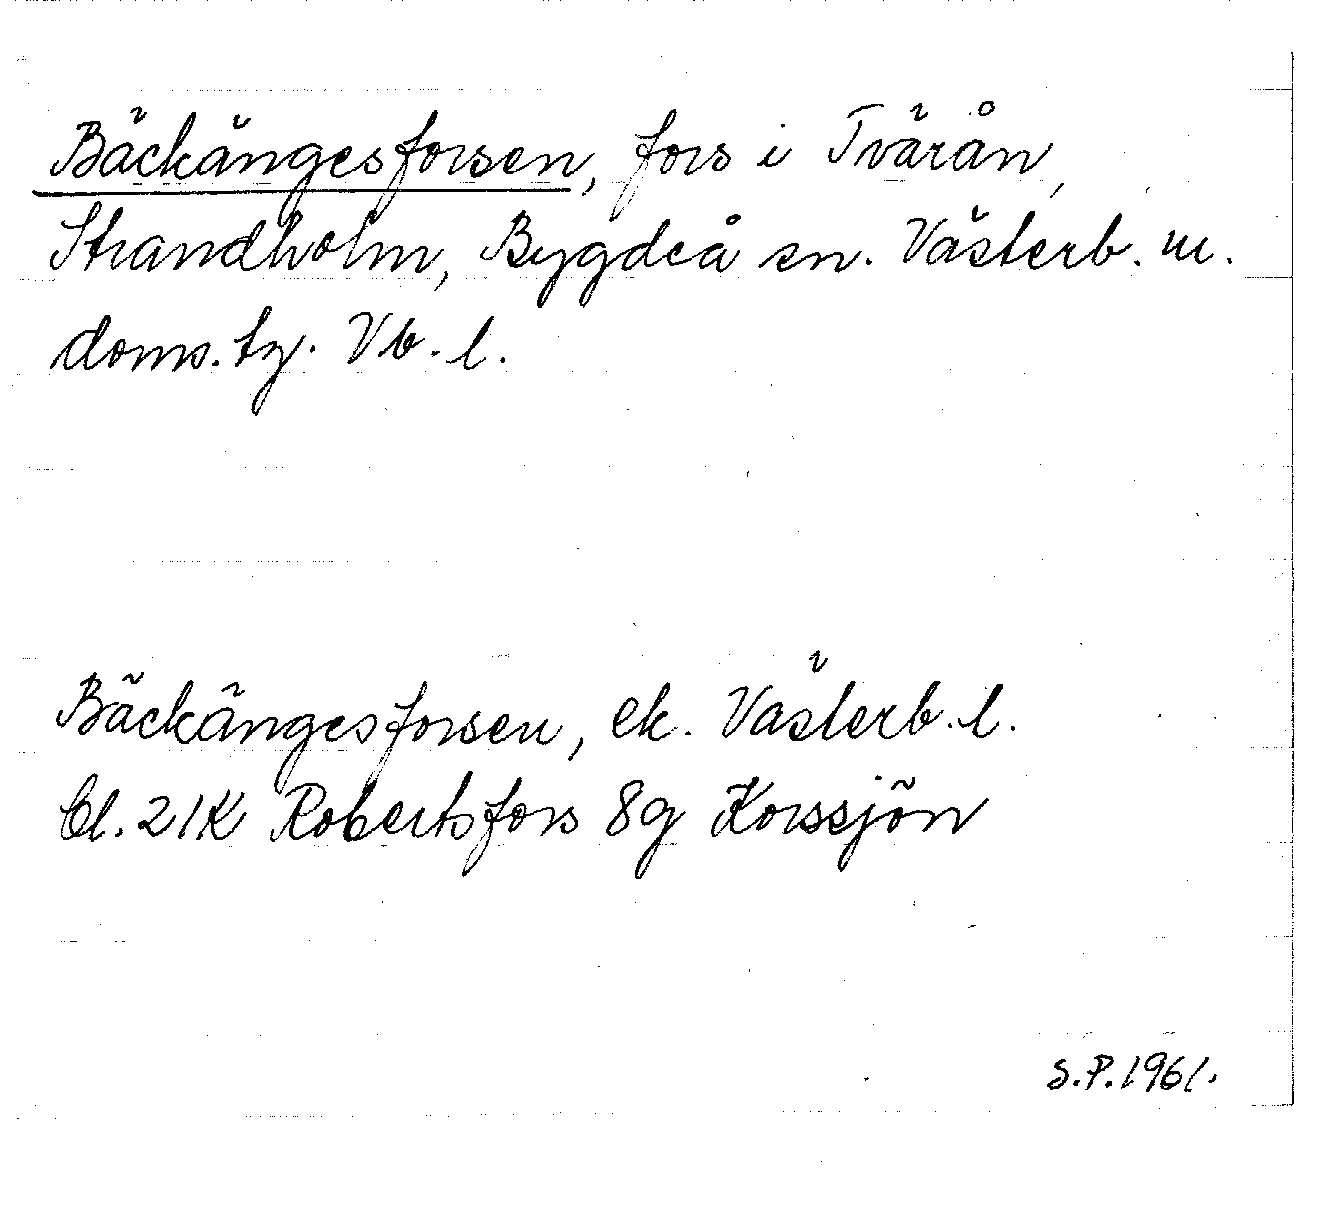 Bäckängesforsen, fors i Tvärån,
Strandholm, Bygdeå sn. Västerb. m.
doms. tg. Vb. l.
Bäckängesforsen, ek. Västerb. l.
Bl. 21K Robertsfors 8g Korssjön
S.P. 1961.